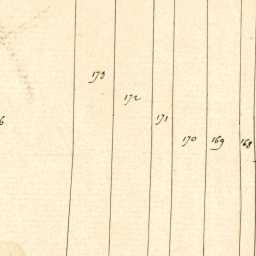 173
172
171
170
169
168
6